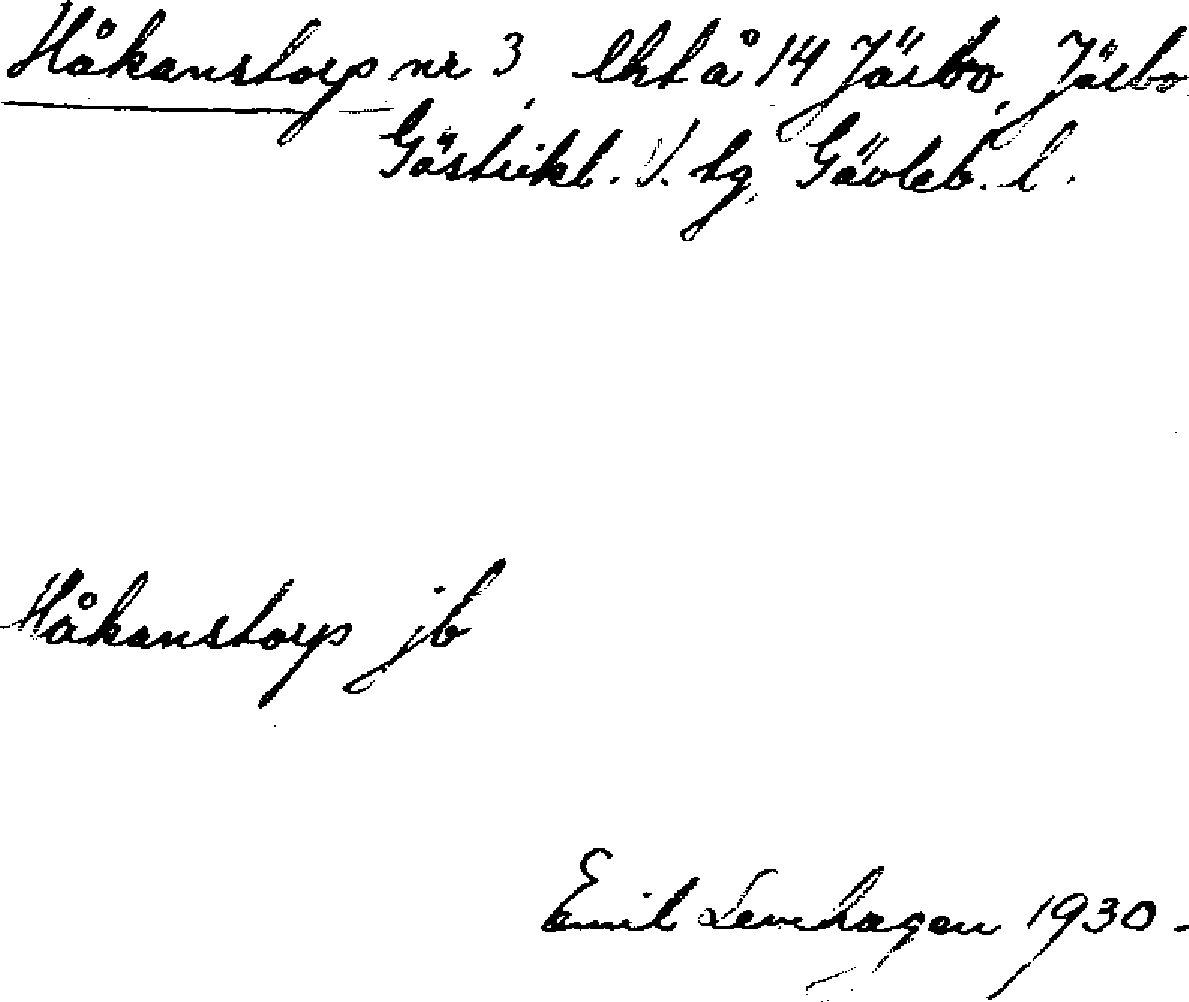 Håkanstorp nr 3, lht å 14 Järbo, Järbo
Gästrikl. V. tg, Gävleb. l.
Håkanstorp jb
Emil Levhagen 1930.